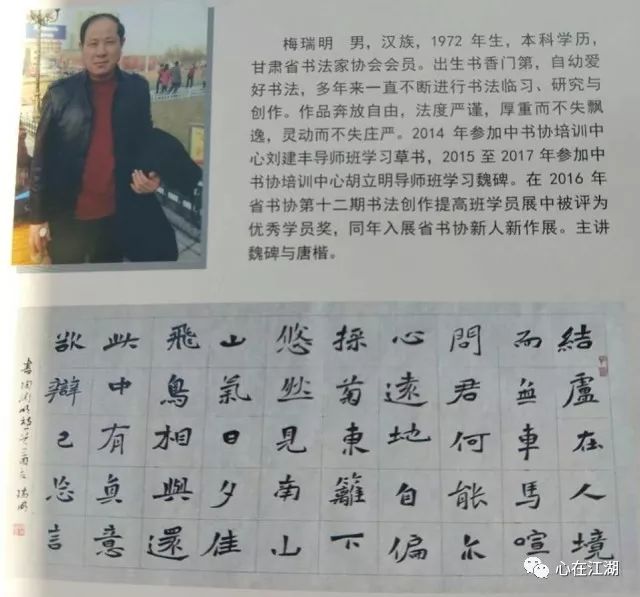 梅瑞明 男，汉族，1972 年生，本科学历，
甘肃省书法家协会会员。出生书香门第，自幼爱
好书法，多年来一直不断进行书法临习、研究与
创作。作品奔放自由，法度严谨，厚重而不失飘
逸，灵动而不失庄严。2014 年参加中书协培训中
心刘建丰导师班学习草书，2015 至 2017 年参加中
书协培训中心胡立明导师班学习魏碑。在 2016 年
省书协第十二期书法创作提高班学员展中被评为
优秀学员奖，同年入展省书协新人新作展。主讲
魏碑与唐楷。
結廬在人境
而無車馬喧
問君何能尔
心遠地自偏
採菊東籬下
悠然見南山
山氣日夕佳
飛鳥相與還
此中有真意
欲辯已忘言
書陶淵明詩 瑞明
心在江湖